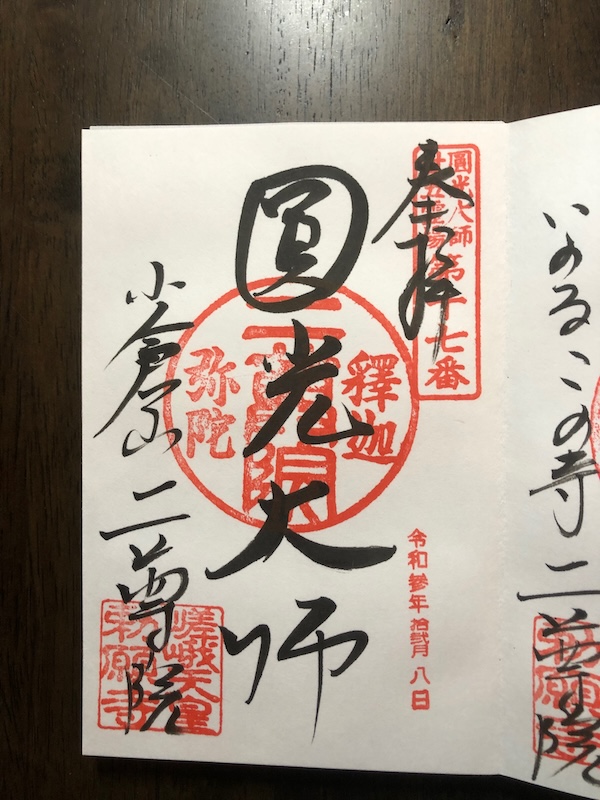 いのるこの寺二尊院
奉拝
圓光大師
廿五霊場第十七番
圓光大師
釋迦
二尊院
弥陀
令和参年拾弐月八日
小倉山二尊院
嵯峨天皇
勅願寺